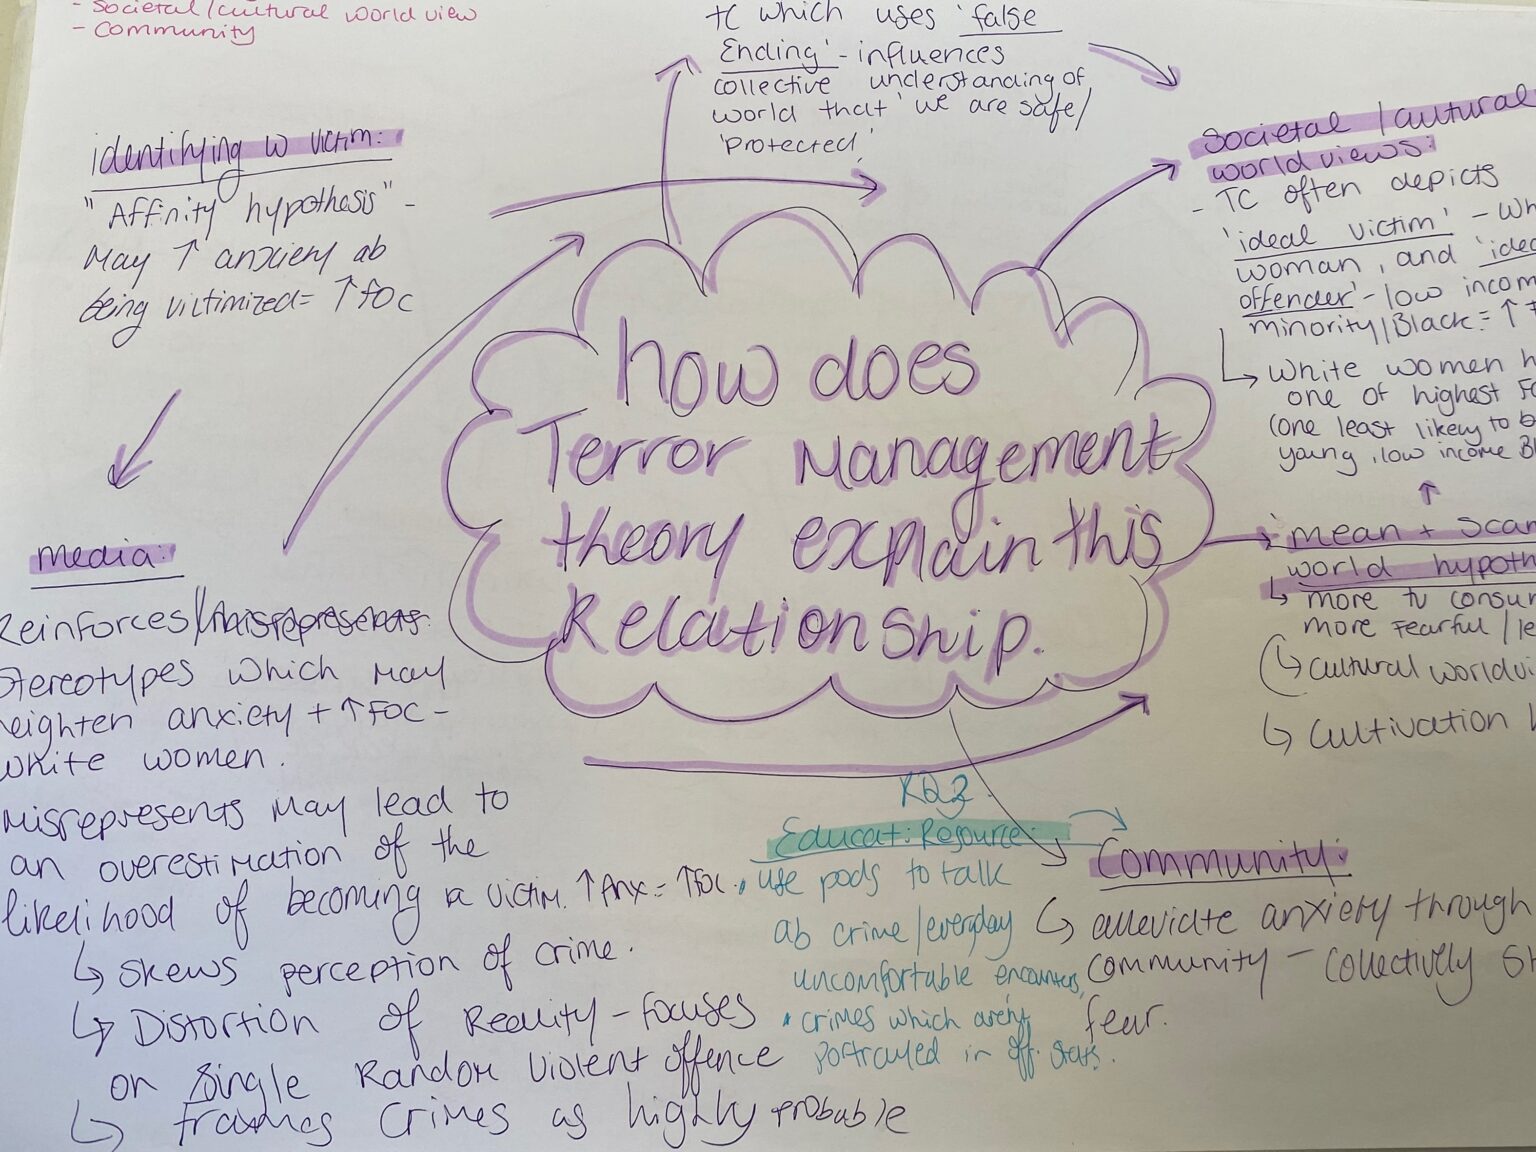 - Societal/cultural world view
- Community
TC which uses 'false
Ending' - influences
collective understanding of
world that 'we are safe/
'protected'
identifying w victim:
"Affinity hypothesis" -
May ↑ anxiety ab
being victimized = ↑ FOC
Societal/cultural
world views:
- TC often depicts
'ideal victim' - Wh
woman, and 'idea
offender' - low incom
minority/Black = ↑ F
↳ White women h
one of highest F
(one least likely to b
young, low income Bl
how does
Terror Management
theory explain this
Relationship.
'mean + scar
world hypoth
↳ more tv consum
more fearful/le
(↳ cultural worldvi
↳ Cultivation
media:
Reinforces/misrepresents
stereotypes which may
heighten anxiety + ↑ FOC -
white women.
misrepresents may lead to
an overestimation of the
likelihood of becoming a victim. ↑ Anx = ↑ FOC.
↳ skews perception of crime.
↳ Distortion of Reality - focuses
on single Random violent offence
↳ frames crimes as highly probable
Educat: Resource:
• use pods to talk
ab crime/everyday
uncomfortable encounters,
• crimes which aren't
portrayed in off. stats.
Community:
↳ alleviate anxiety through
community - collectively sh
fear.